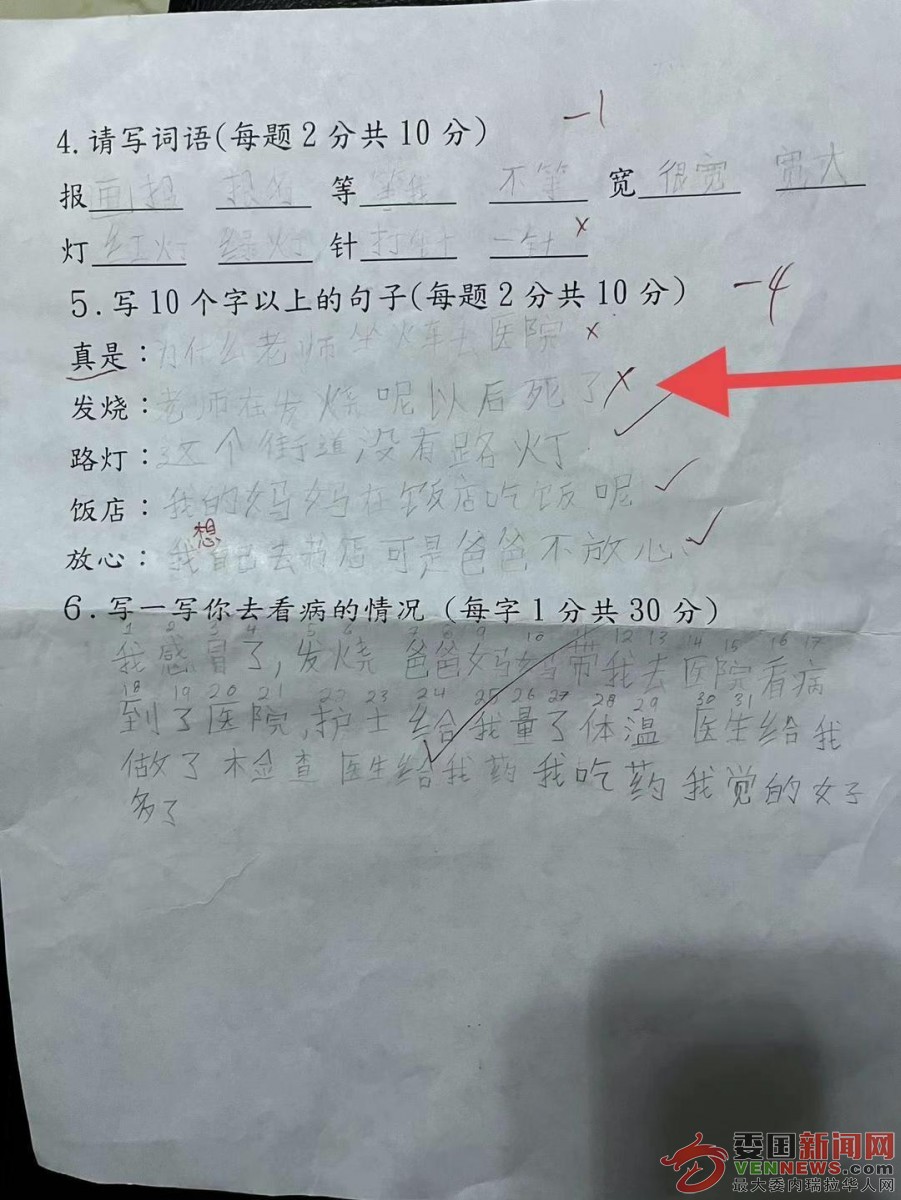 -1
4.请写词语(每题2分共10分)
报画报 报纸 等等我 不等 宽很宽 宽大
灯红灯 绿灯 针打针 一针 x
5.写10个字以上的句子(每题2分共10分) -4
真是:为什么老师坐火车去医院 x
发烧:老师在发烧呢以后死了 x
路灯:这个街道没有路灯
饭店:我的妈妈在饭店吃饭呢
想
放心:我自己去书店可是爸爸不放心
6.写一写你去看病的情况(每字1分共30分)
1 2 3 4 5 6 7 8 9 10 11 12 13 14 15 16 17
我感冒了,发烧 爸爸妈妈带我去医院看病
18 19 20 21 22 23 24 25 26 27 28 29 30 31
到了医院,护士给我量了体温 医生给我
做了检查 医生给我药 我吃药 我觉的好
多了
委国新闻网
VENNEWS.COM
最大委内瑞拉华人网